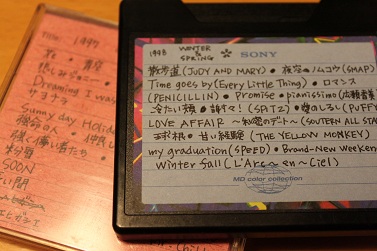 TITLE: 1997
悲しみジョニー
Dreaming I was
サヨナラ
Sunny day Holi
運命の人
強く儚い者たち
SOON
い間
1998 WINTER & SPRING SONY
散歩道(JUDY AND MARY)・夜空ノムコウ(SMAP)
Time goes by(Every Little Thing)・ロマンス
(PENICILLIN)・Promise・pianissimo(広瀬香美
冷たい頬・謝々!(SPITZ)・愛のしるし(PUFFY
LOVE AFFAIR 〜秘密のデート〜(SOUTHERN ALL STA
球根・甘い経験(THE YELLOW MONKEY)
my graduation(SPEED)・Brand-New Weeken
winter fall(L'Arc〜en〜Ciel)
MD color collection